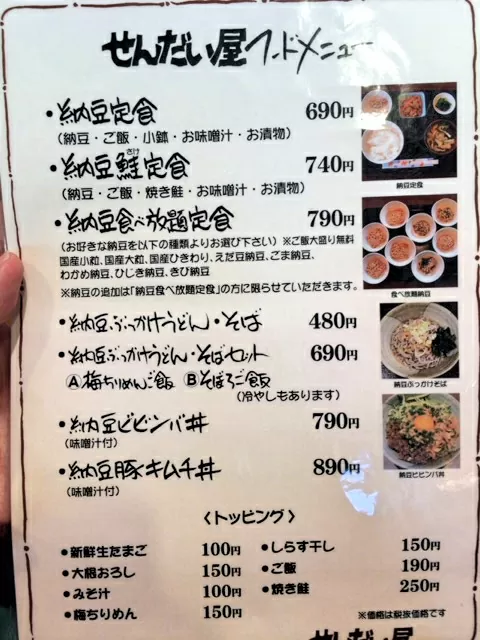 せんだい屋フードメニュー
・納豆定食 690円
(納豆・ご飯・小鉢・お味噌汁・お漬物)
・納豆鮭定食 740円
さけ
(納豆・ご飯・焼き鮭・お味噌汁・お漬物)
納豆定食
・納豆食べ放題定食 790円
(お好きな納豆を以下の種類よりお選び下さい) ※ご飯大盛り無料
国産小粒、国産大粒、国産ひきわり、えだ豆納豆、ごま納豆、
わかめ納豆、ひじき納豆、きび納豆
※納豆の追加は「納豆食べ放題定食」の方に限らせていただきます。
食べ放題納豆
・納豆ぶっかけうどん・そば 480円
・納豆ぶっかけうどん・そばセット 690円
Ⓐ梅ちりめんご飯 Ⓑそぼろご飯
(冷やしもあります)
納豆ぶっかけそば
・納豆ビビンバ丼 790円
(味噌汁付)
・納豆豚キムチ丼 890円
(味噌汁付)
納豆ビビンバ丼
〈トッピング〉
●新鮮生たまご 100円
●大根おろし 150円
●みそ汁 100円
●梅ちりめん 150円
●しらす干し 150円
●ご飯 190円
●焼き鮭 250円
※価格は税抜価格です
せんだい屋